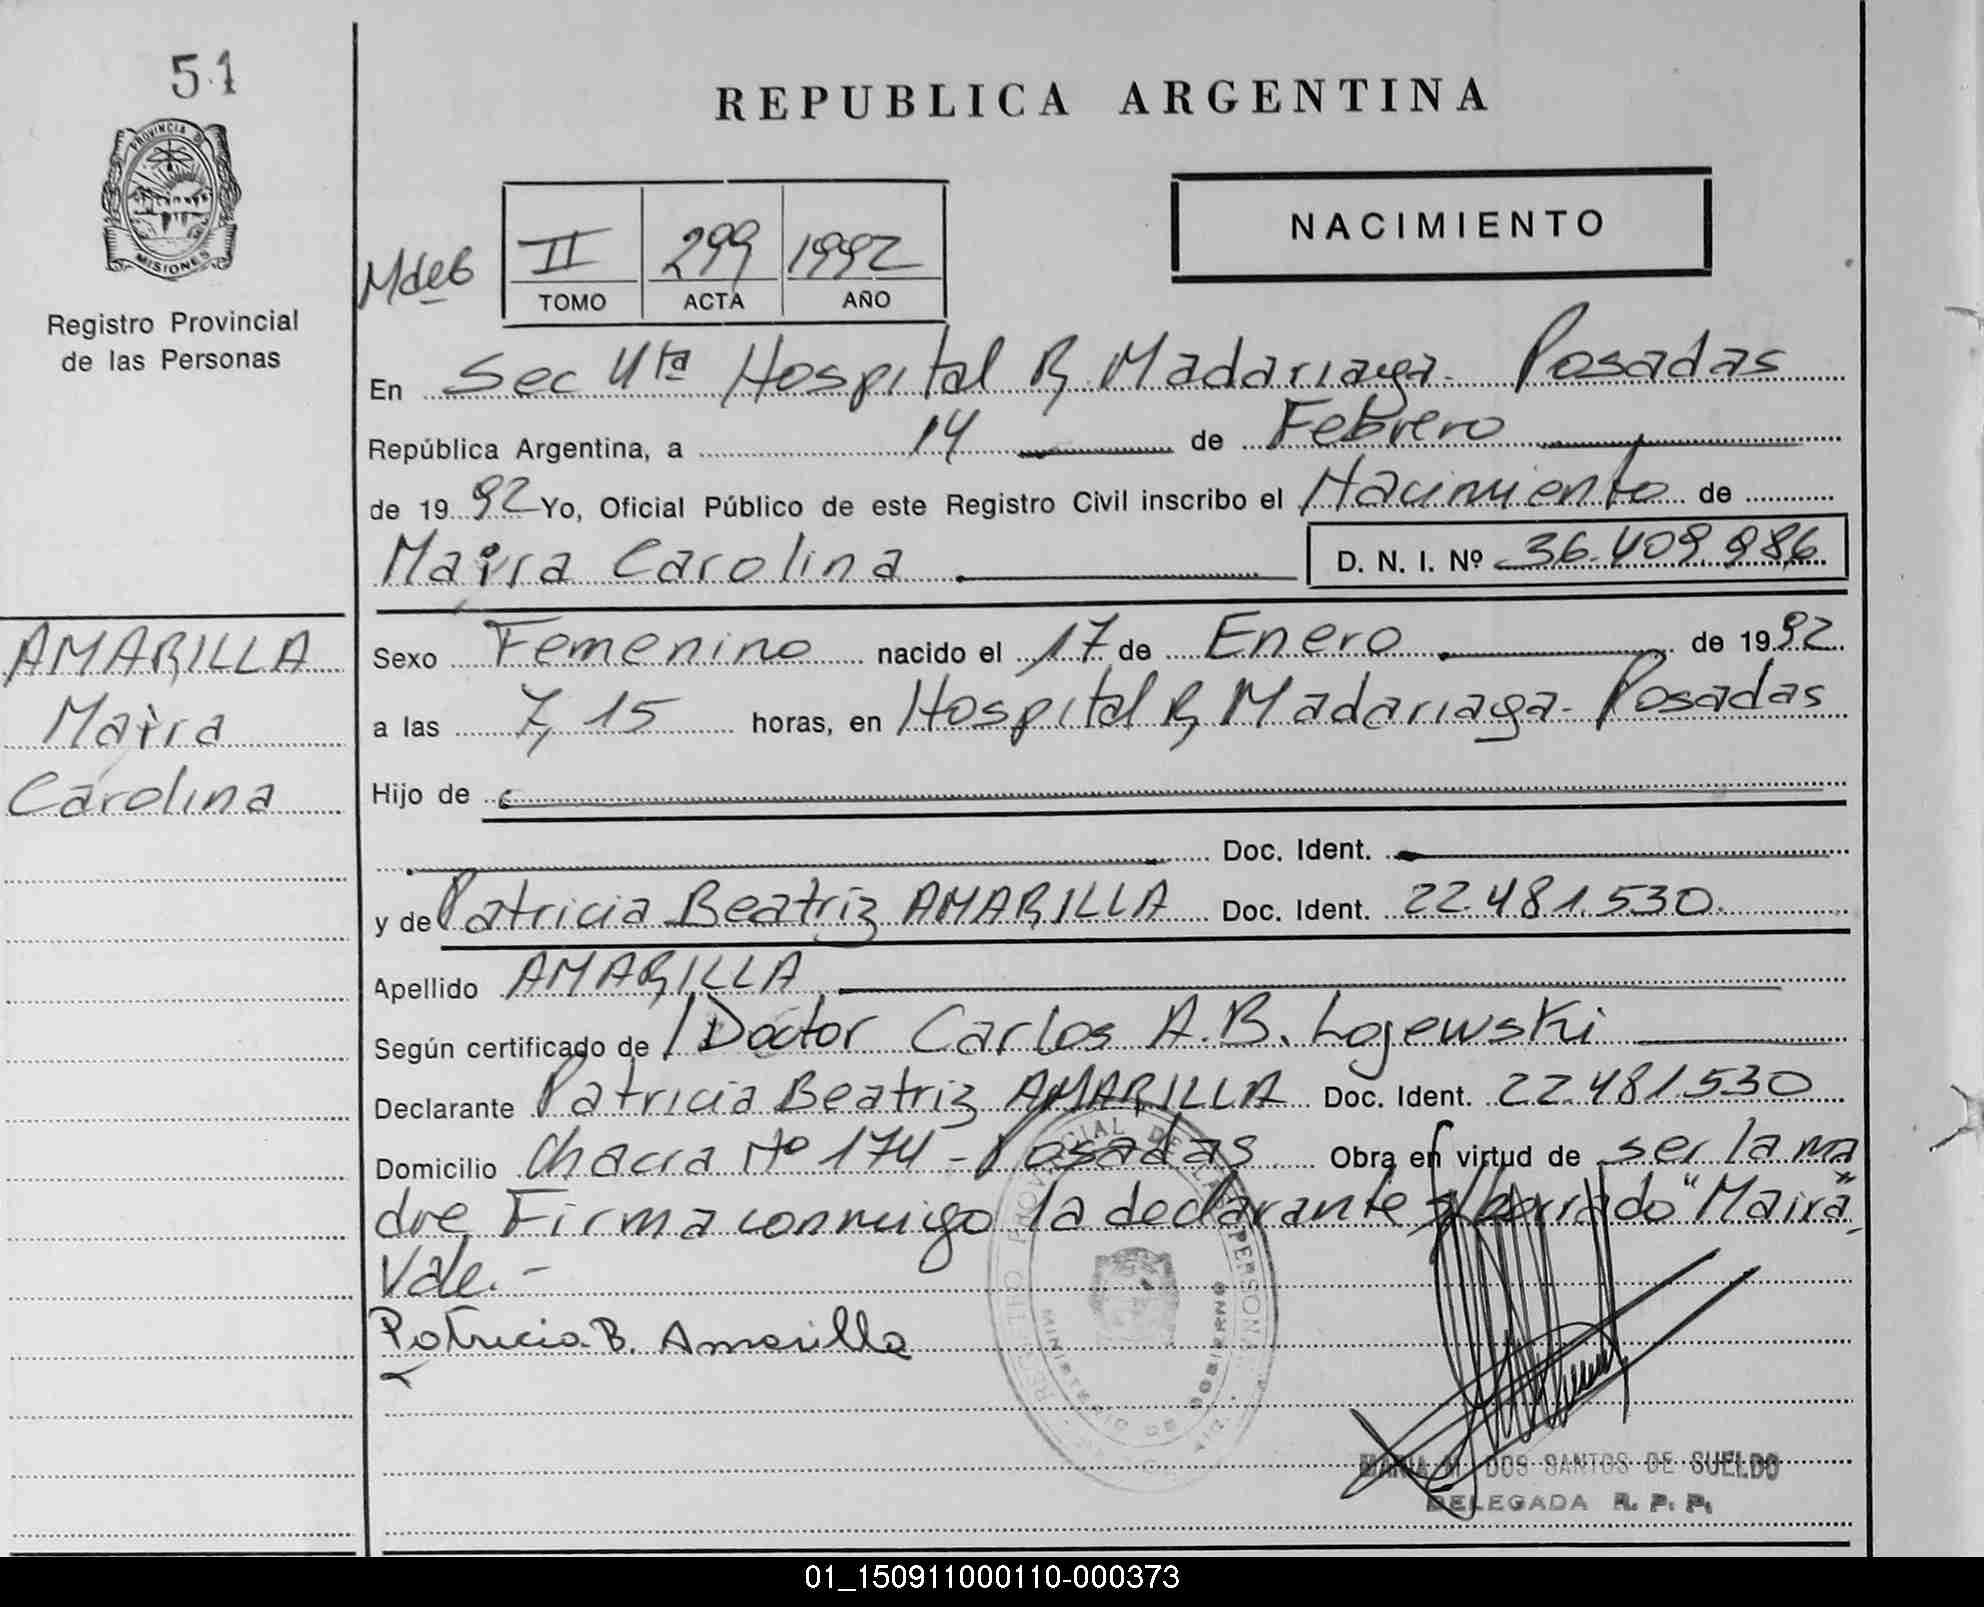 51
PROVINCIA DE
MISIONES
Registro Provincial
de las Personas
REPUBLICA ARGENTINA
NACIMIENTO
II 299 1992
TOMO ACTA AÑO
En Sec 4ta Hospital R. Madariaga - Posadas
República Argentina, a 14 de Febrero
de 1992 Yo, Oficial Público de este Registro Civil inscribo el Nacimiento de
Maira Carolina D. N. I. Nº 36.409.986.
AMARILLA
Maira
Carolina
Sexo Femenino nacido el 17 de Enero de 1992
a las 7,15 horas, en Hospital R. Madariaga - Posadas
Hijo de
Doc. Ident.
y de Patricia Beatriz AMARILLA Doc. Ident. 22.481.530.
Apellido AMARILLA
Según certificado de Doctor Carlos A. B. Lojewski
Declarante Patricia Beatriz AMARILLA Doc. Ident. 22.481.530
Domicilio Chacra Nº 174 - Posadas Obra en virtud de ser la ma
dre Firma conmigo la declarante s/borrado "Maira"
Vale.-
Patricia B. Amarilla
REGISTRO PROVINCIAL DE LAS PERSONAS
MINISTERIO DE GOBIERNO
MARIA M. DOS SANTOS DE SUELDO
DELEGADA R. P. P.
01_150911000110-000373